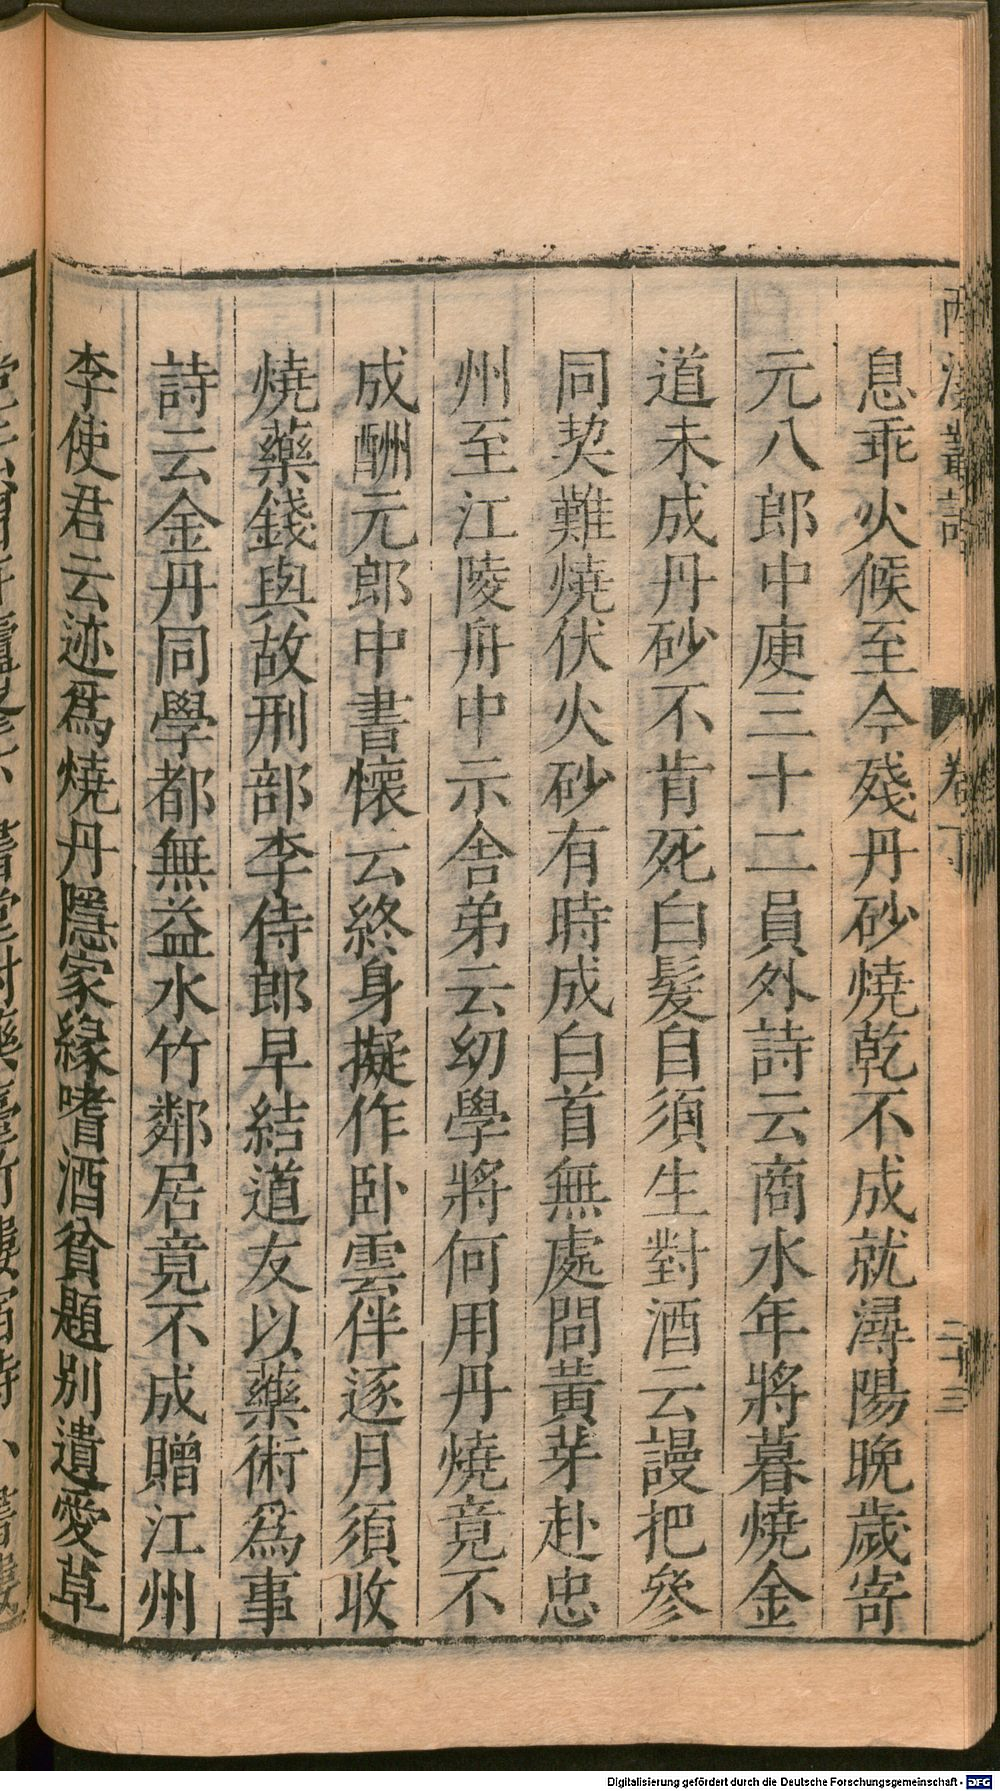 息乖火候至今殘丹砂燒乾不成就潯陽晚歲寄
元八郎中庾三十二員外詩云商水年將暮燒金
道未成丹砂不肯死白髮自須生對酒云謾把參
同契難燒伏火砂有時成白首無處問黃芽赴忠
州至江陵舟中示舍弟云幼學將何用丹燒竟不
成酬元郎中書懷云終身擬作卧雲伴逐月須收
燒藥錢與故刑部李侍郎早結道友以藥術爲事
詩云金丹同學都無益水竹鄰居竟不成贈江州
李使君云迹爲燒丹隱家緣嗜酒貧題別遺愛草
西溪叢語 卷下 二十三
Digitalisierung gefördert durch die Deutsche Forschungsgemeinschaft - DFG